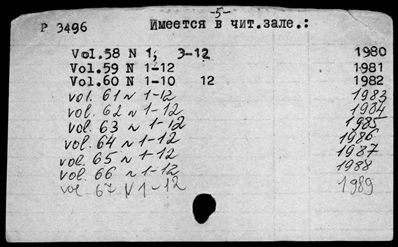 -5-
P 3496 Имеется в чит.зале.:
Vol.58 N 1, 3-12 1980
Vol.59 N 1-12 1981
Vol.60 N 1-10 12 1982
vol. 61 N 1-12 1983
vol. 62 N 1-12 1984
vol. 63 N 1-12 1985
vol. 64 N 1-12 1986
vol. 65 N 1-12 1987
vol. 66 N 1-12 1988
vol. 67 N 1-12 1989